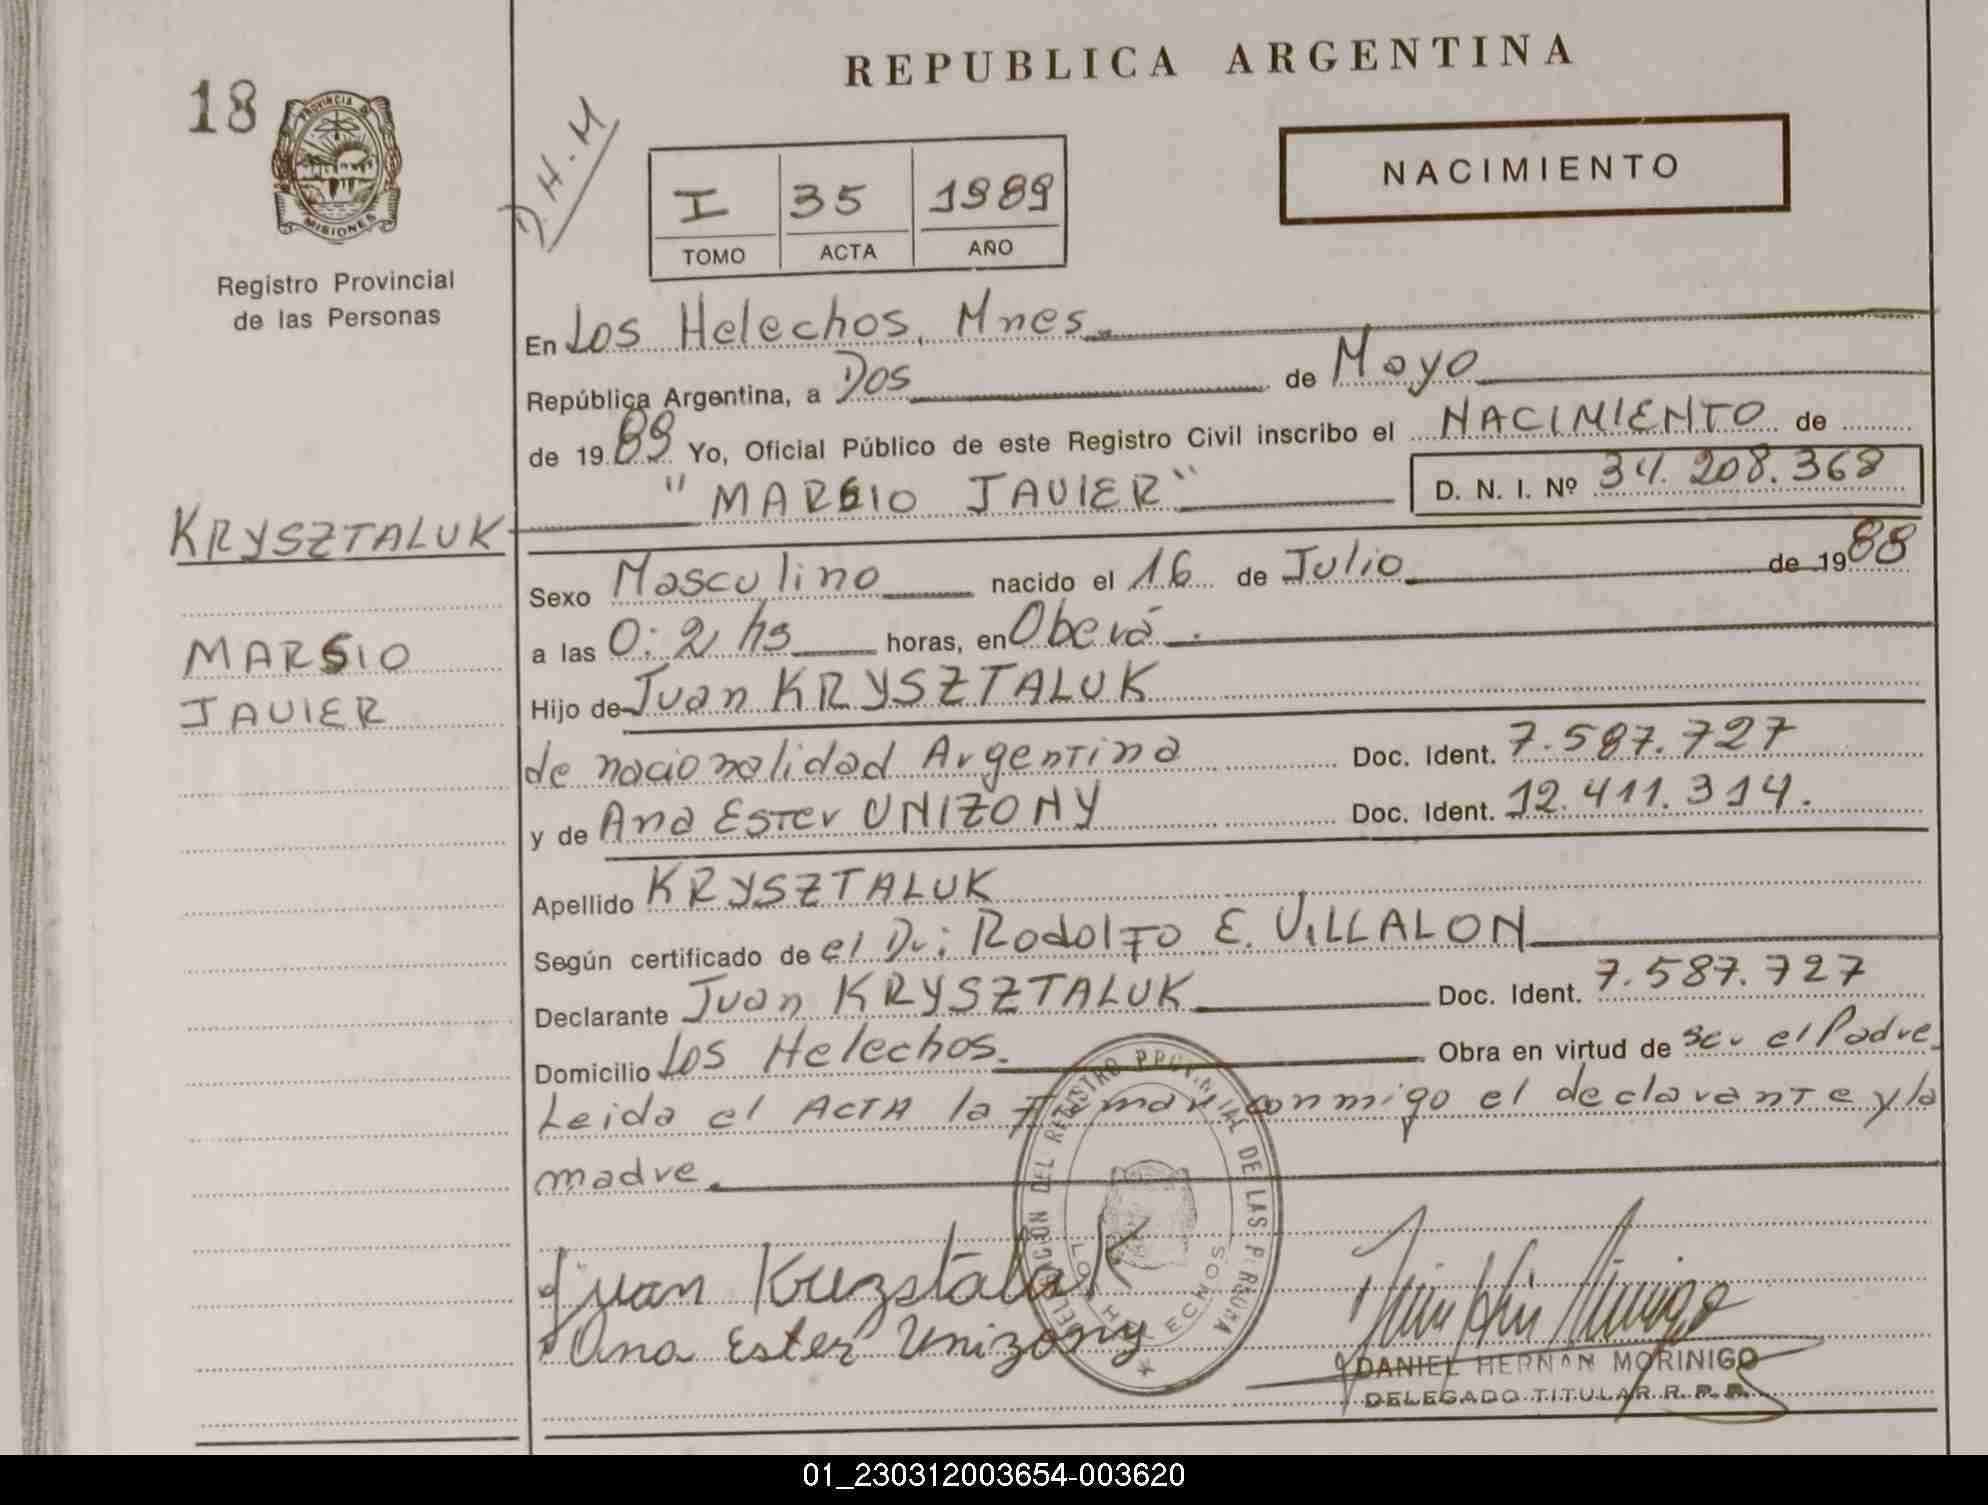 REPUBLICA ARGENTINA
18
PROVINCIA DE
MISIONES
Registro Provincial
de las Personas
D.H.M
NACIMIENTO
I 35 1989
TOMO ACTA AÑO
En Los Helechos, Mnes.
República Argentina, a Dos de Mayo
de 1989 Yo, Oficial Público de este Registro Civil inscribo el NACIMIENTO de
"MARSIO JAVIER" D. N. I. Nº 34.208.368
KRYSZTALUK
MARSIO
JAVIER
Sexo Masculino nacido el 16 de Julio de 1988
a las 0:2 hs horas, en Oberá.
Hijo de Juan KRYSZTALUK
de nacionalidad Argentina Doc. Ident. 7.587.727
y de Ana Ester UNIZONY Doc. Ident. 12.411.314.
Apellido KRYSZTALUK
Según certificado de el Dr: Rodolfo E. VILLALON
Declarante Juan KRYSZTALUK Doc. Ident. 7.587.727
Domicilio Los Helechos. Obra en virtud de ser el Padre.
Leida el ACTA la Firman conmigo el declarante y la
madre.
DELEGACION DEL REGISTRO PROVINCIAL DE LAS PERSONA
LOS HELECHOS
Juan Kruzstaluk
Ana Ester Unizony
DANIEL HERNAN MORINIGO
DELEGADO TITULAR R. P. P.
01_230312003654-003620